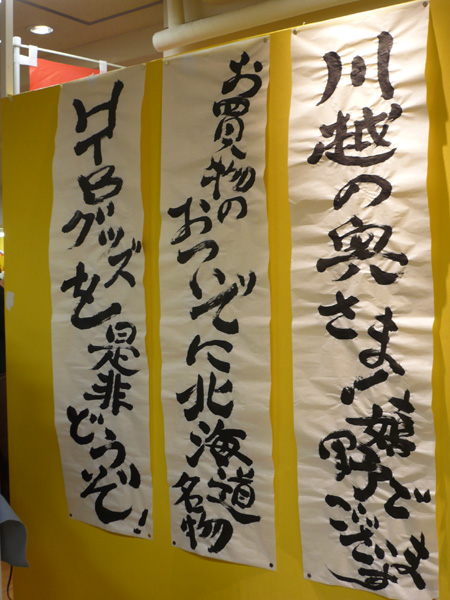 川越の奥さま!嬉野でございます
お買物のおついでに北海道名物
HTBグッズを是非どうぞ!